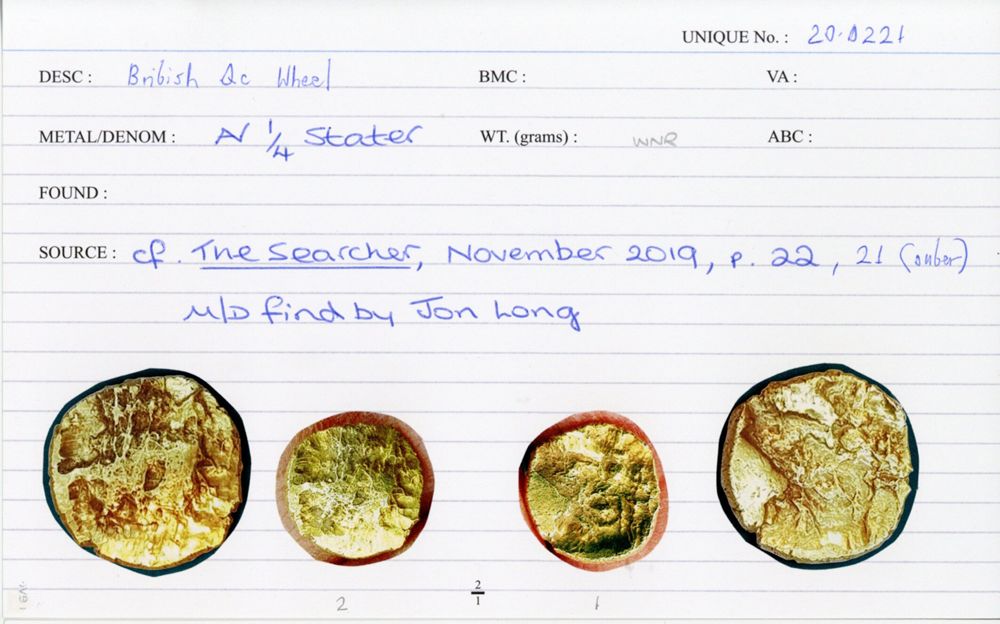 UNIQUE No. : 20.0221
DESC : British Qc Wheel BMC : VA :
METAL/DENOM : N 1/4 Stater WT. (grams) : WNR ABC :
FOUND :
SOURCE : cf. The Searcher, November 2019, p. 22, 21 (outer)
M/D find by Jon Long
2 2/1 1